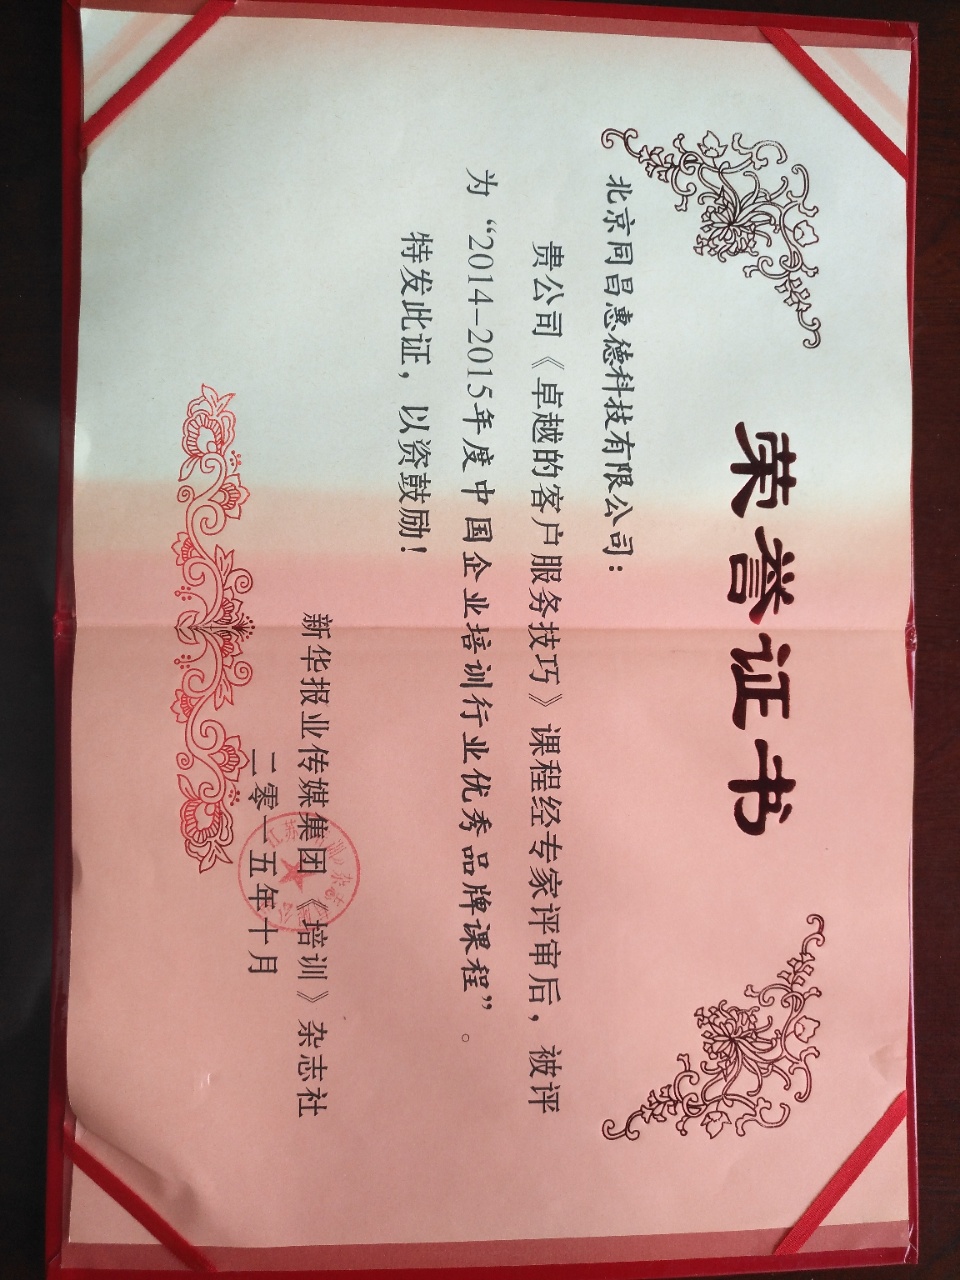 荣誉证书
北京同昌惠德科技有限公司：
贵公司《卓越的客户服务技巧》课程经专家评审后，被评
为“2014-2015年度中国企业培训行业优秀品牌课程”。
特发此证，以资鼓励！
新华报业传媒集团《培训》杂志社
二零一五年十月